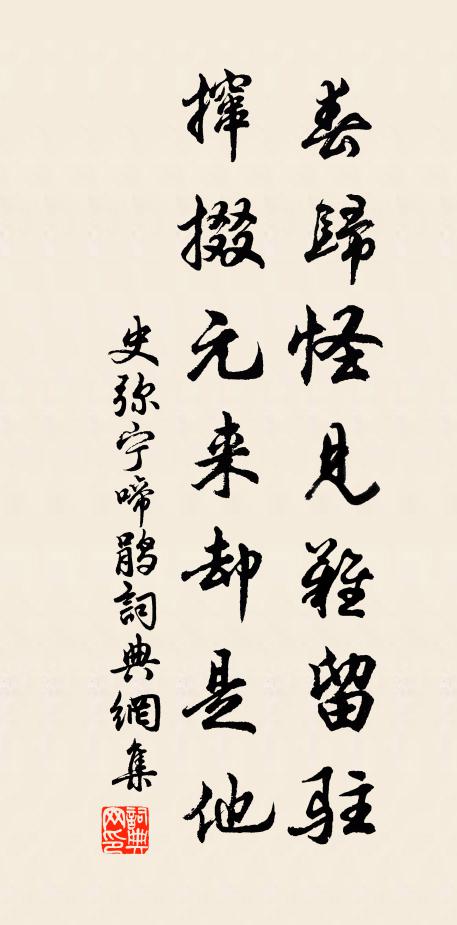 春歸怪見難留駐
撺掇元来却是他
史弥宁啼鹃詞典網集
詞典網印